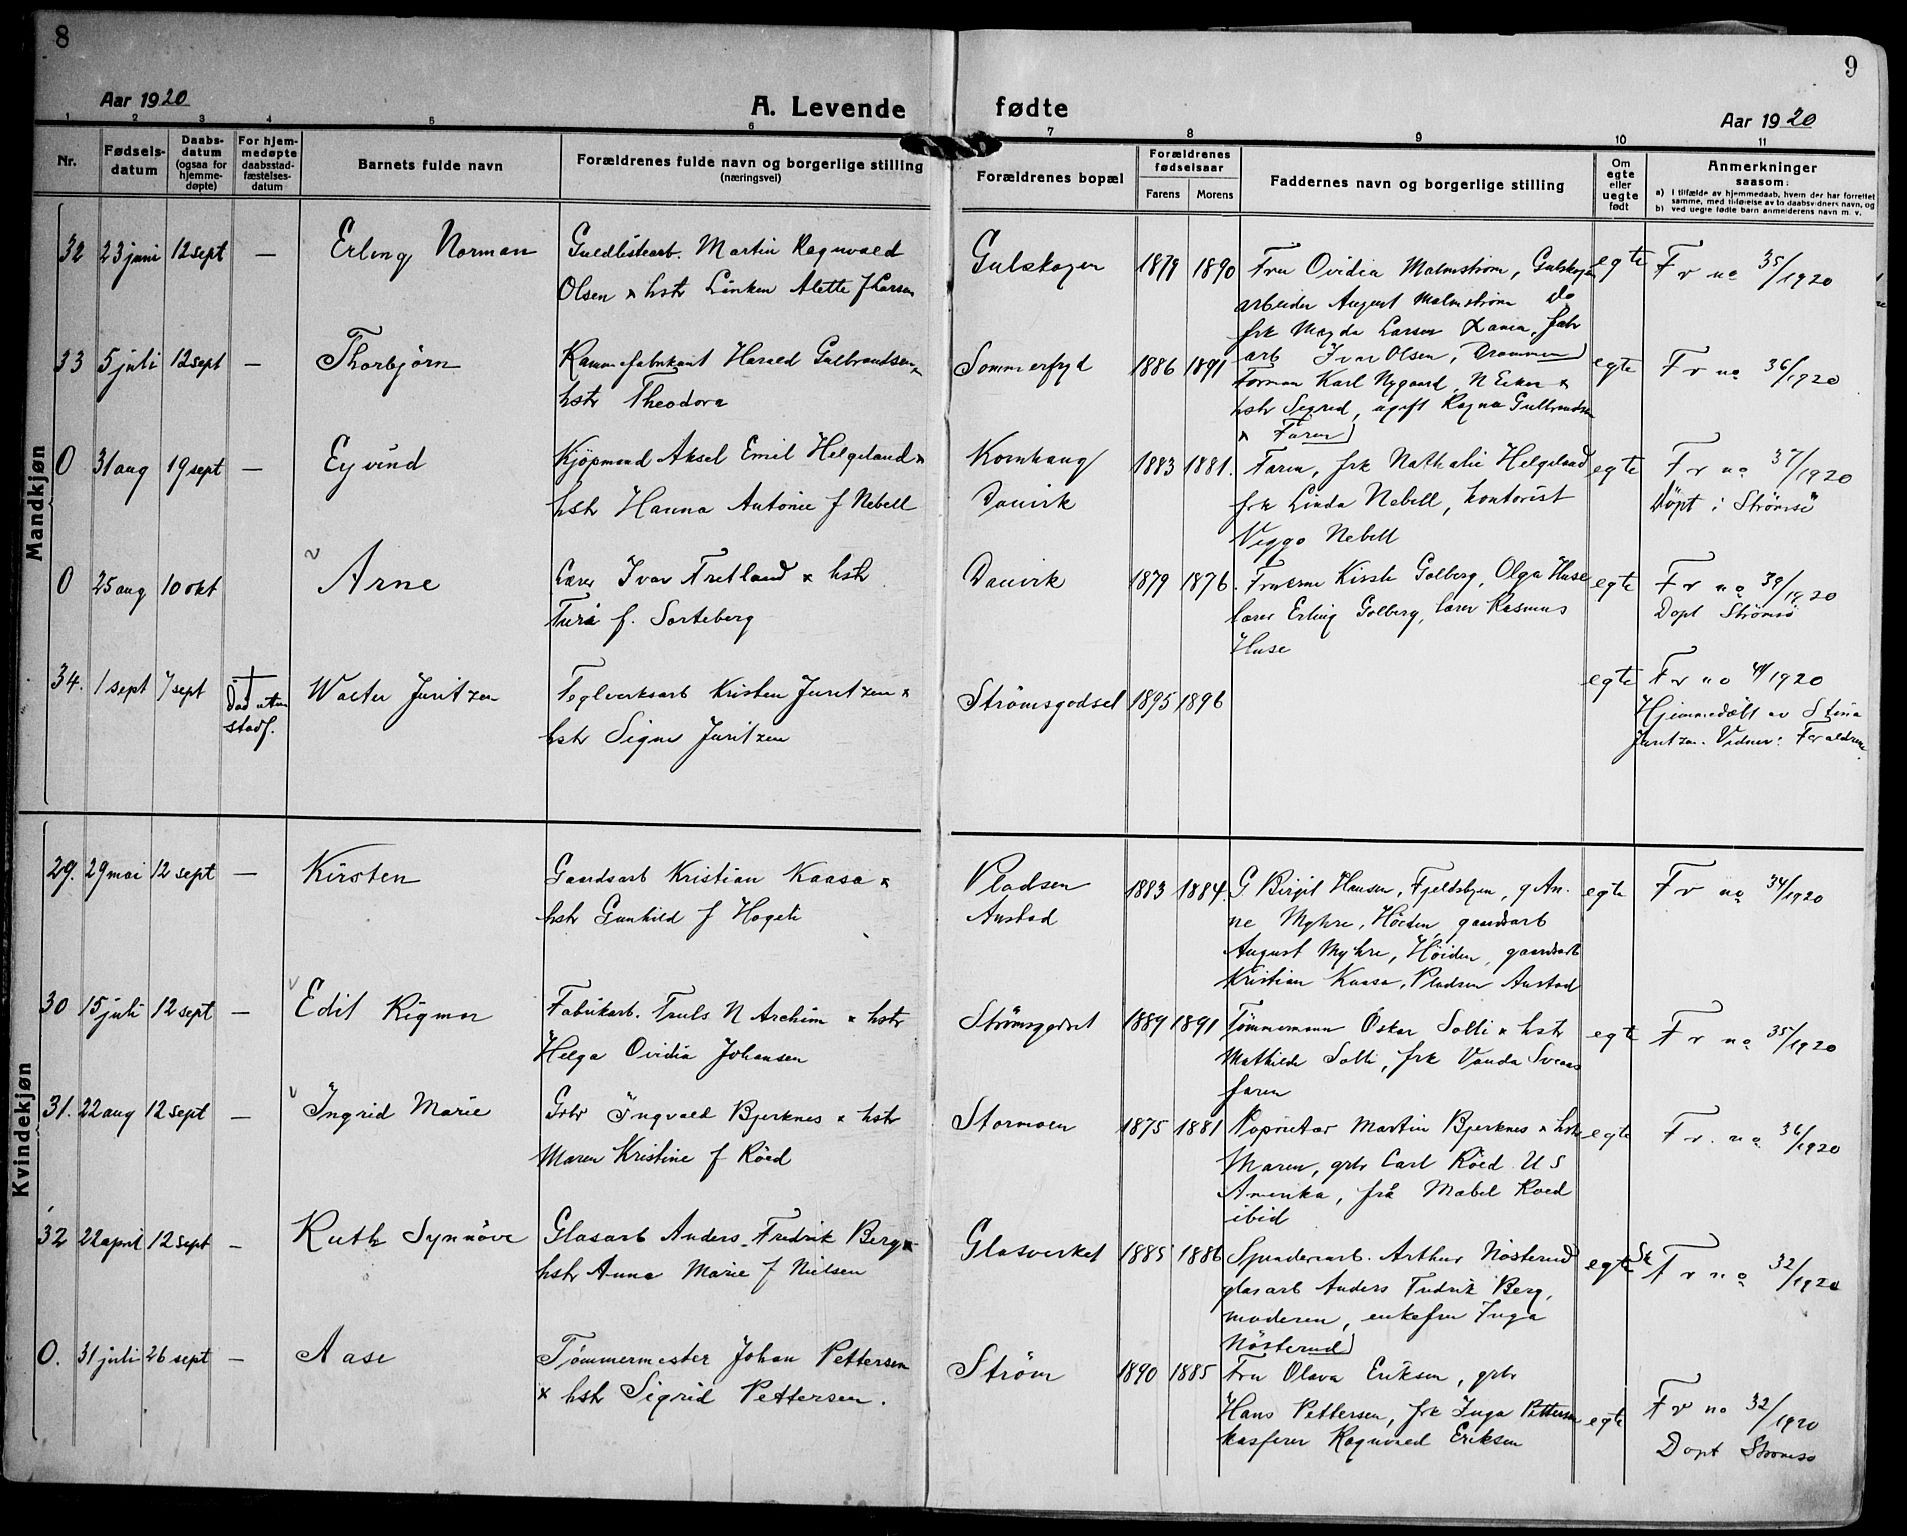 8
9
Aar 1920
A. Levende fødte
Aar 1920
1 2 3 4 5 6 7 8 9 10 11
Nr.
Fødselsdatum
Daabsdatum (ogsaa for hjemmedøpte)
For hjemmedøpte daabsstadfæstelsesdatum
Barnets fulde navn
Forældrenes fulde navn og borgerlige stilling (næringsvei)
Forældrenes bopæl
Forældrenes fødselsaar
Farens Morens
Faddernes navn og borgerlige stilling
Om egte eller uegte født
Anmerkninger saasom:
a) I tilfælde av hjemmedaab, hvem der har forrettet samme, med tilføielse av to daabsvidners navn, og
b) ved uegte fødte barn anmelderens navn m. v.
Mandkjøn
32 23 juni 12 sept — Erling Norman
Guldlistearb. Martin Ragnvald
Olsen x hstr Linken Alette f Larsen
Gulskogen 1879 1890
Fru Ovidia Malmstrøm, Gulskogen
arbeider August Malmstrøm Do
frk Magda Larsen Rania, fabr
arb Ivar Olsen, Drammen
egte
F v no 35/1920
33 5 juli 12 sept — Thorbjörn
Rammefabrikant Harald Gulbrandsen x
hstr Theodora
Sommerfryd 1886 1891
Forman Karl Nygaard, N Eker x
hstr Sigrid, ugift Ragna Gulbrandsen
x Faren
egte
F v no 36/1920
0 31 aug 19 sept — Eyvind
Kjöpmand Aksel Emil Helgeland x
hstr Hanna Antonie f Nebell
Kornhaug
Danvik
1883 1881.
Faren, frk Nathalie Helgeland
frk Linda Nebell, kontorist
Viggo Nebell
egte
F v no 37/1920
Döpt i Strömsö
0 25 aug 10 okt Arne
Lærer Ivar Fretland x hstr
Turi f. Sorteberg
Danvik 1879 1876.
Fruerne Kirsti Golberg, Olga Huse
lærer Erling Golberg, lærer Rasmus
Huse
egte
F v no 39/1920
Döpt Strömsö
34. 1 sept 7 sept
Död uten
stadf.
Walter Juritzen
Teglverksarb Kristen Juritzen x
hstr Signe Juritzen
Strömsgodset 1895 1896
egte
F v no 41/1920
Hjemmedöbt av Stina
Juritzen. Vidner: Forældrene.
Kvindekjøn
29. 29 mai 12 sept — Kirsten
Gaardsarb Kristian Kaasa x
hstr Gunhild f Hogeti
Pladsen
Austad
1883 1884.
G Birgit Hansen, Fjeldsbyen, g An-
ne Myhre, Höiden, gaardsarb
August Myhre, Höiden, gaardsarb
Kristian Kaasa, Pladsen Austad
egte
F v no 34/1920
30 15 juli 12 sept — Edit Rigmor
Fabrikarb. Truls N Archim x hstr
Helga Ovidia Johansen
Strömsgodset 1889 1891
Tömmermann Oskar Solli x hstr
Mathilde Solli, frk Vanda Sveaas
faren
egte
F v no 35/1920
31. 22 aug 12 sept — Ingrid Marie
Grbr Ingvald Bjerknes x hstr
Maren Kristine f Röed
Stormoen 1875 1881
Proprietær Martin Bjerknes x hstr
Maren, grbr Carl Röed U S
Amerika, frk Mabel Roed
ibid
egte
F v. no 36/1920
32 22 april 12 sept — Ruth Synnöve
Glasarb Anders Fredrik Berg x
hstr Anna Marie f Nielsen
Glasverket 1885 1886
Spunderarb. Arthur Nösterud
glasarb Anders Fredrik Berg,
moderen, enkefru Inga
Nösterud
egte
F v no 32/1920
0. 31 juli 26 sept — Aase
Tömmermester Johan Pettersen
x hstr Sigrid Pettersen.
Ström 1890 1885
Fru Olava Eriksen, grbr
Hans Pettersen, frk Inga Pettersen
kasserer Ragnvald Eriksen
egte
F v no 32/1920
Döpt Strömsö